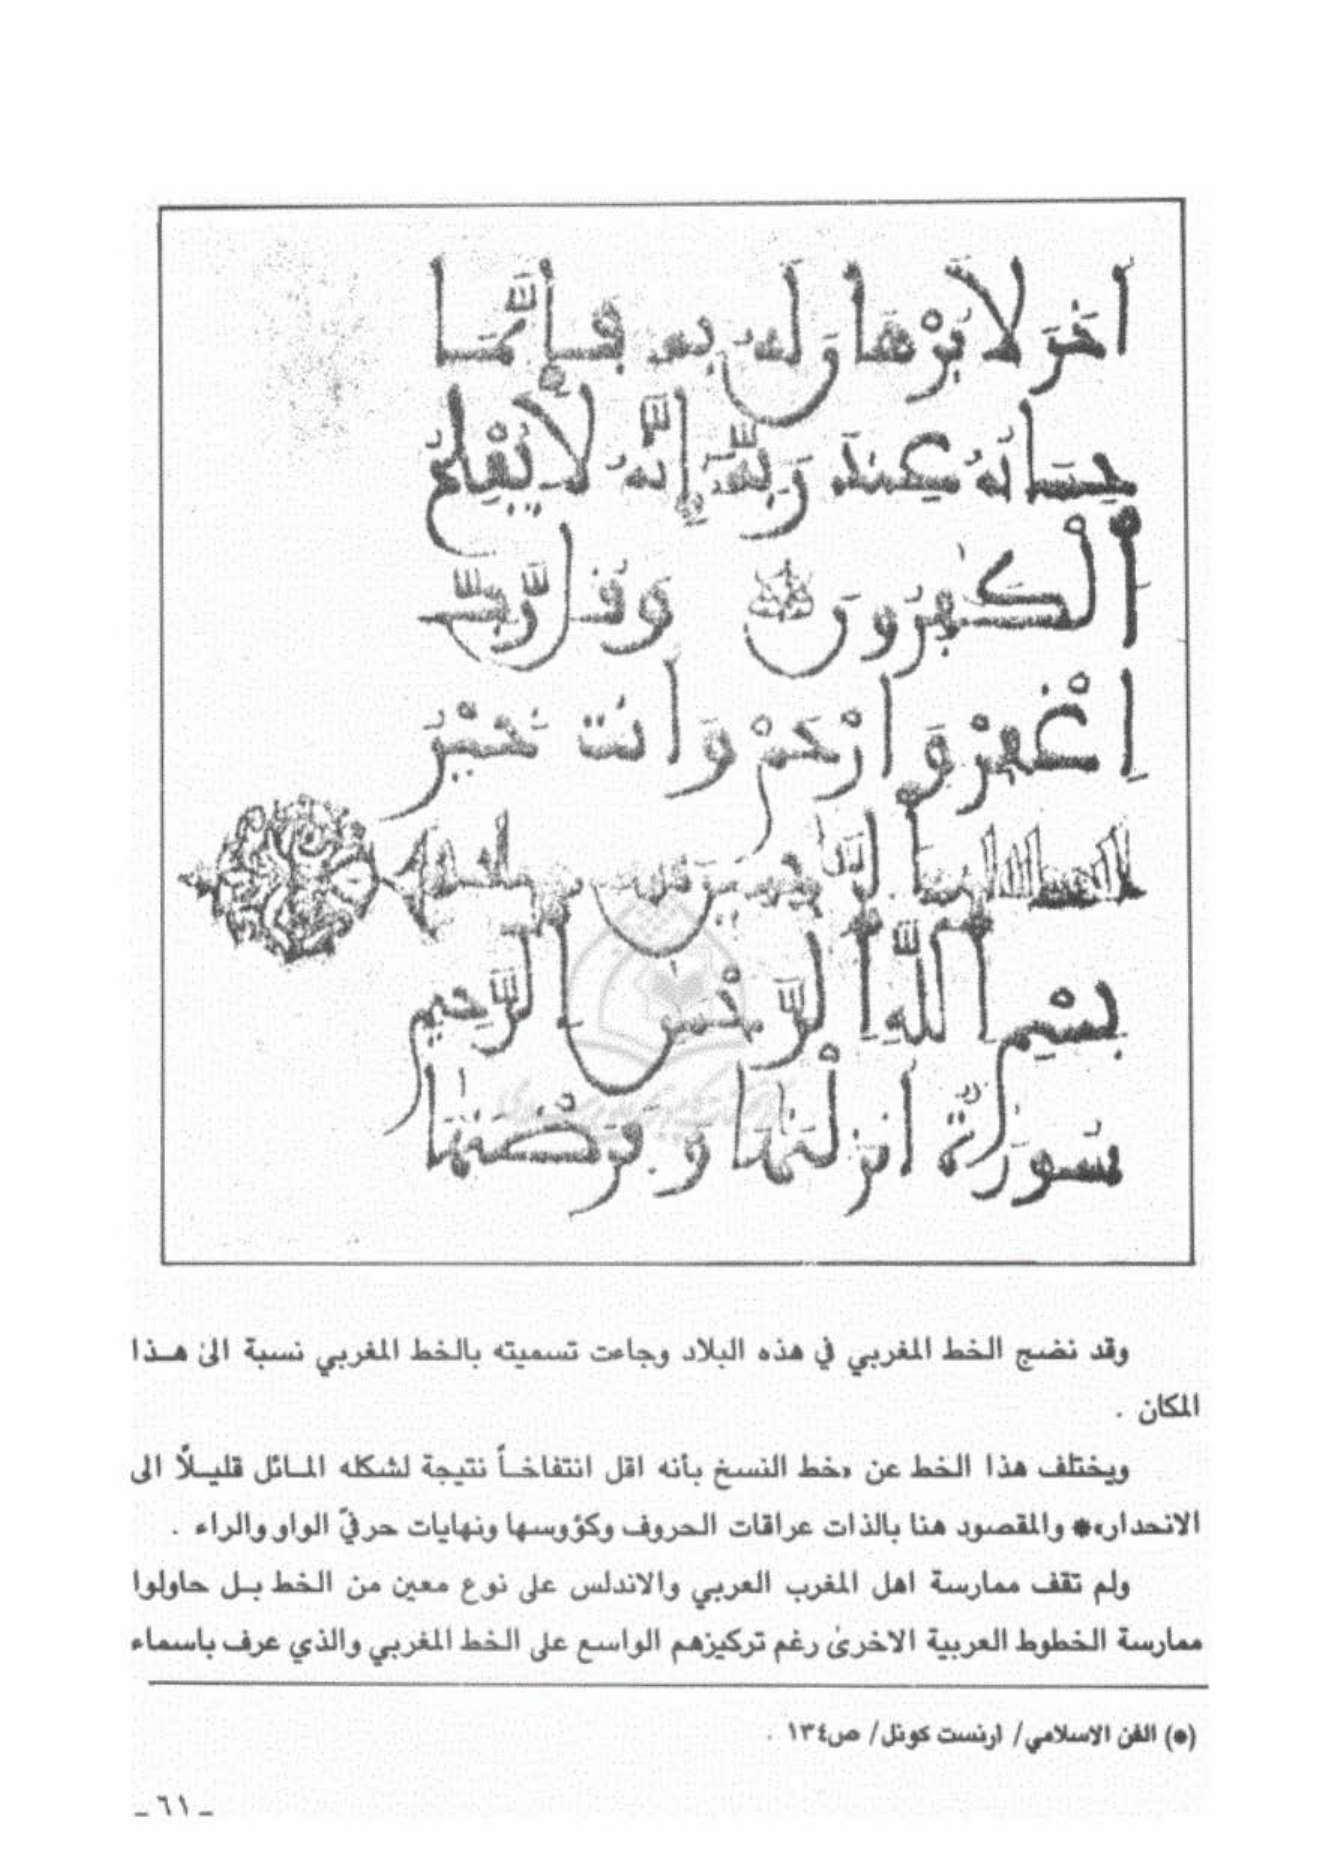 اخَرَ لَا بُرْهَٰنَ لَهُۥ بِهِۦ فَإِنَّمَا
حِسَابُهُ عِندَ رَبِّهِۦٓ إِنَّهُۥ لَا يُفْلِحُ
اُ۬لْكَٰفِرُونَ وَقُل رَّبِّ
اِ۪غْفِرْ وَارْحَمْ وَأَنتَ خَيْرُ
بِسْمِ اللَّهِ الرَّحْمَٰنِ الرَّحِيمِ
سُورَةٌ أَنزَلْنَٰهَا وَفَرَضْنَٰهَا
وقد نضج الخط المغربي في هذه البلاد وجاءت تسميته بالخط المغربي نسبة الىٰ هـذا
المكان .
ويختلف هذا الخط عن «خط النسخ بأنه اقل انتفاخـاً نتيجة لشكله المـائل قليـلاً الى
الانحدار»* والمقصود هنا بالذات عراقات الحروف وكؤوسها ونهايات حرفيّ الواو والراء .
ولم تقف ممارسة اهل المغرب العربي والاندلس على نوع معين من الخط بـل حاولوا
ممارسة الخطوط العربية الاخرىٰ رغم تركيزهم الواسع على الخط المغربي والذي عرف باسماء
(*) الفن الاسلامي/ ارنست كونل/ ص١٣٤ .
ـ ٦١ ـ